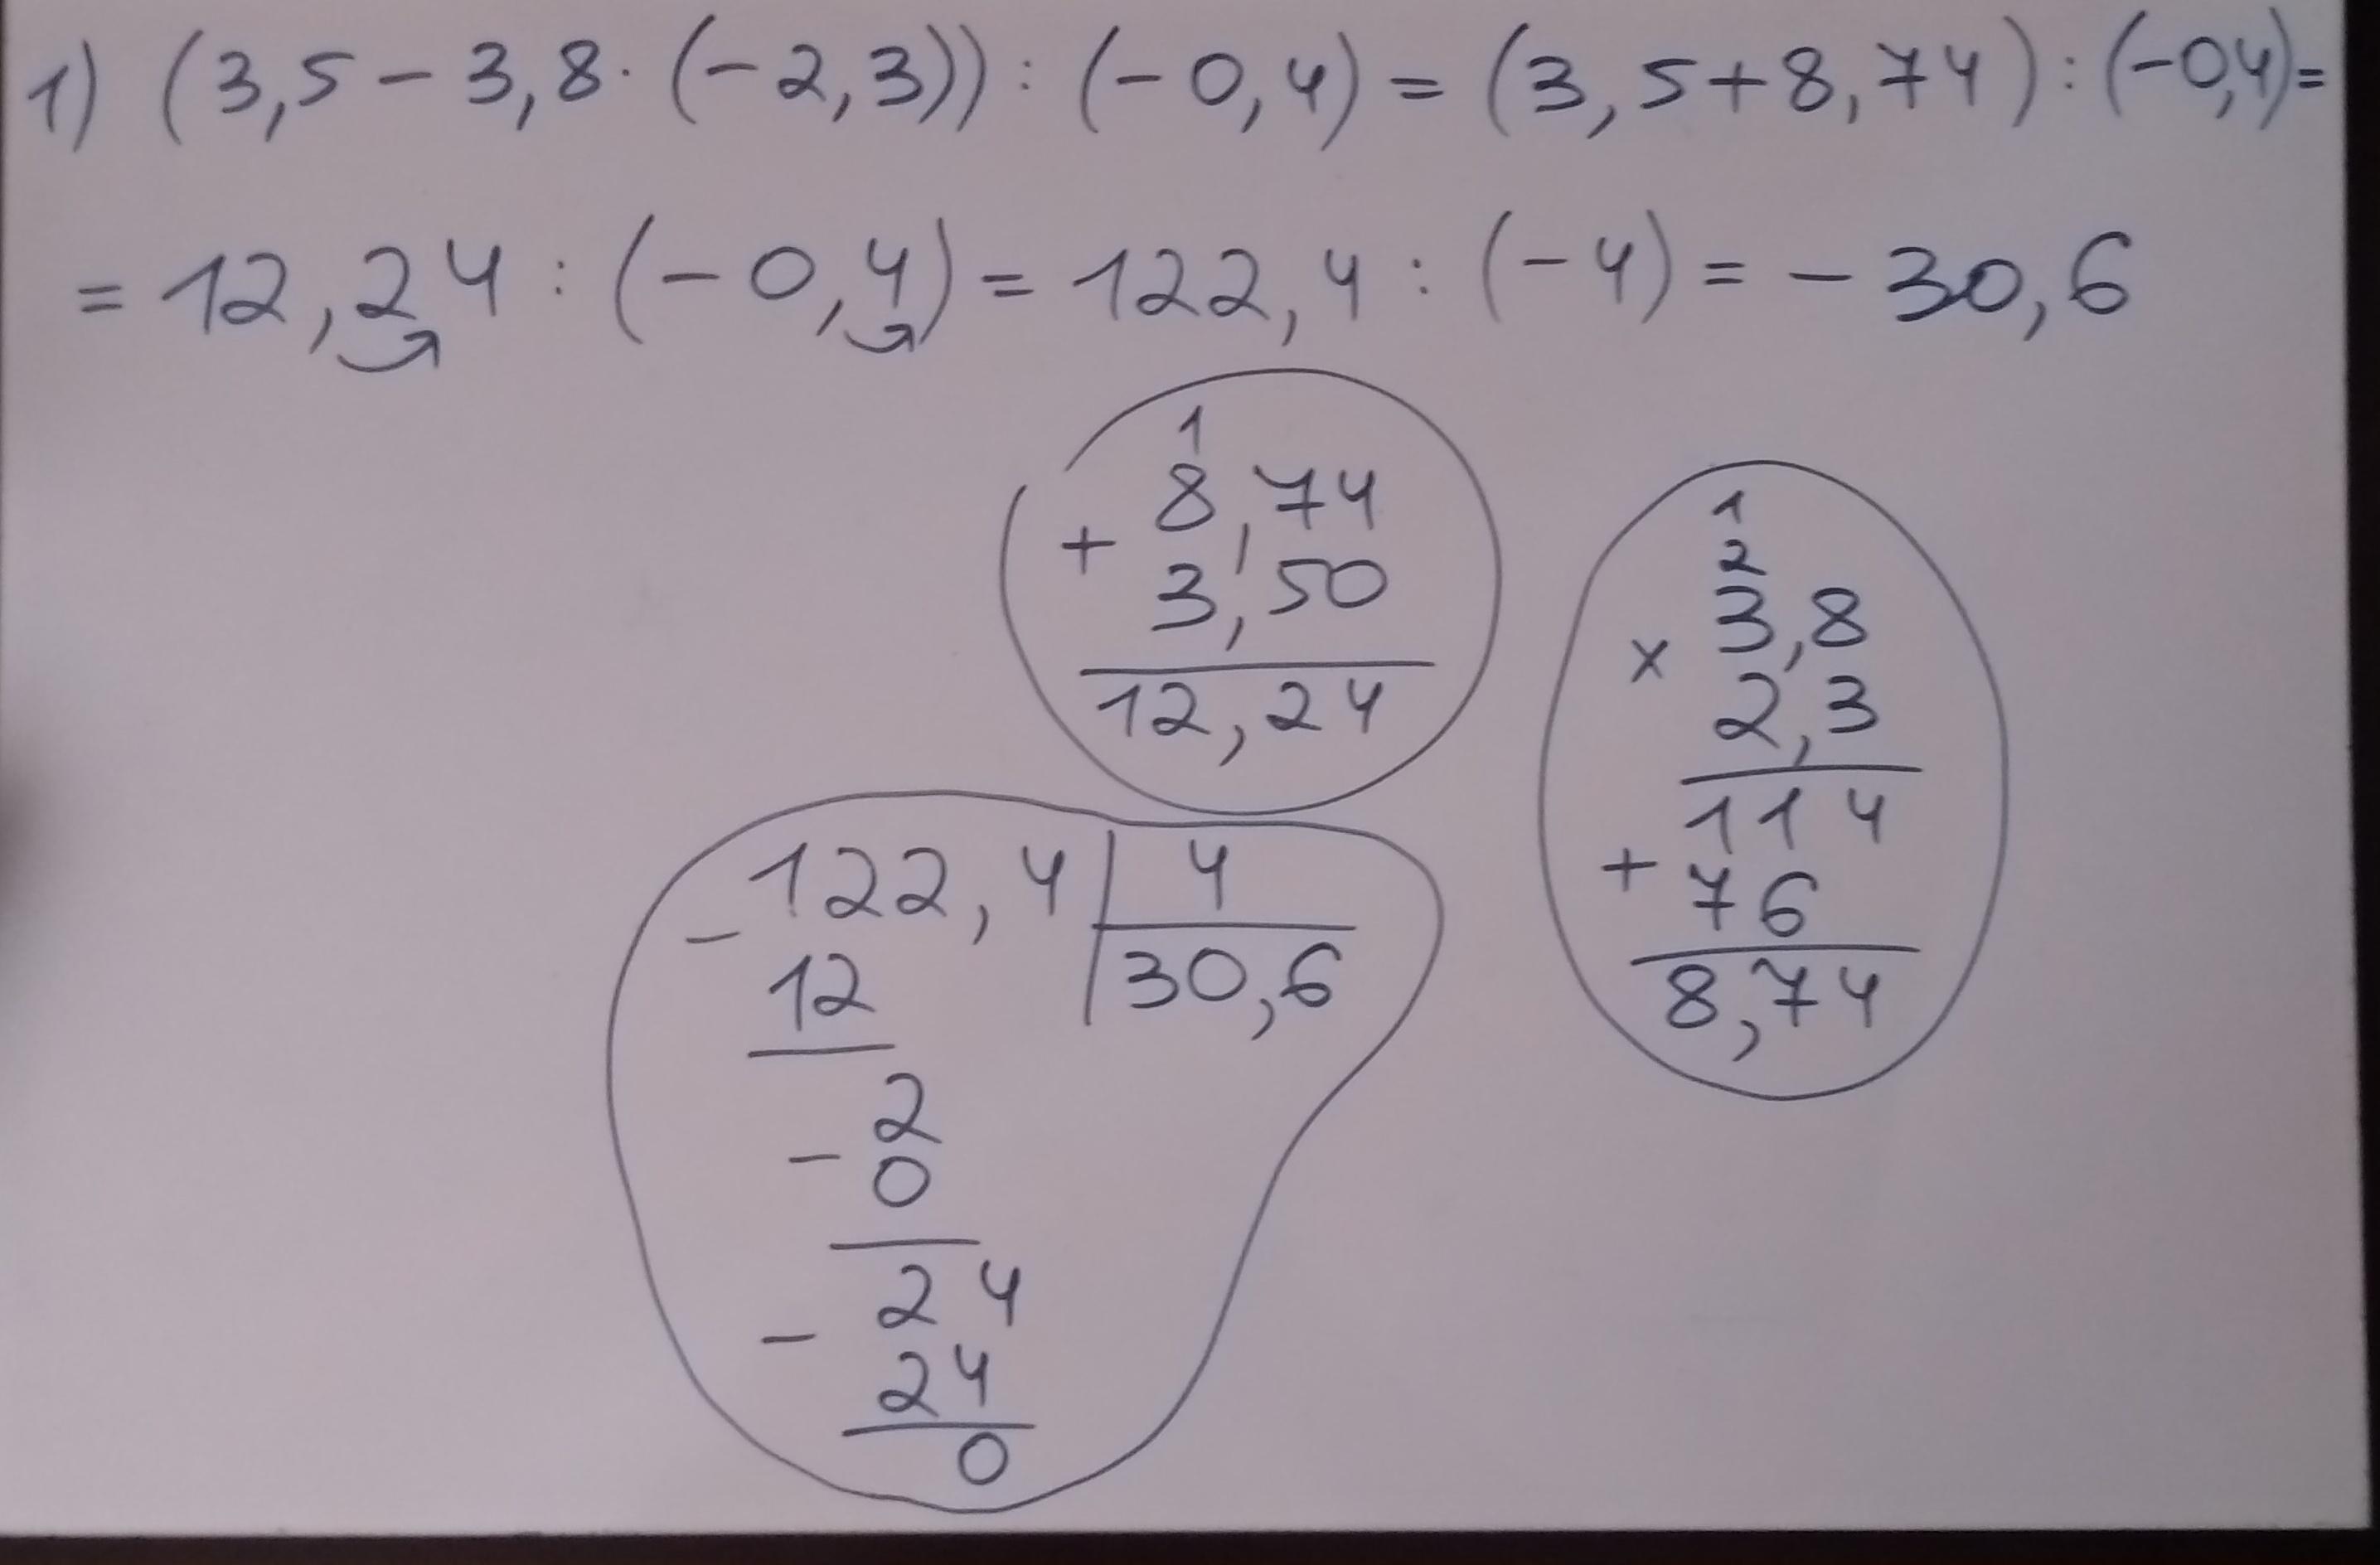 1) (3,5 - 3,8 · (-2,3)) : (-0,4) = (3,5+8,74) : (-0,4) =
= 12,24 : (-0,4) = 122,4 : (-4) = -30,6
1
8,74
+
3,50
12,24
1
2
3,8
x
2,3
114
+ 76
8,74
122,4 | 4
- 12 | 30,6
2
- 0
24
- 24
0